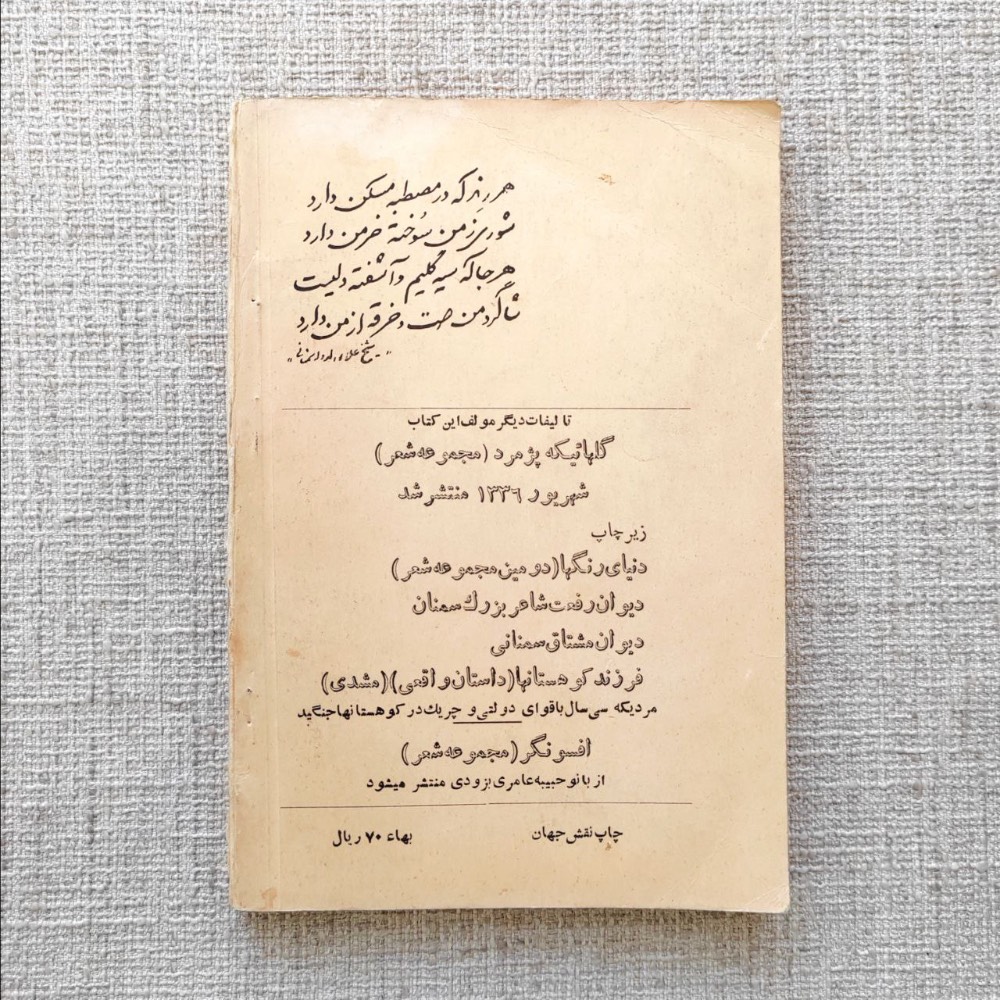 هر رند که در مصطبه مسکن دارد
شوری ز من سوخته خرمن دارد
هر جا که سیه گلیم و آشفته دلیست
شاگرد من است و خرقه از من دارد
"شیخ علاءالدوله سمنانی"
تالیفات دیگر مولف این کتاب
گلهائیکه پژمرد (مجموعه شعر)
شهریور ۱۳۳۶ منتشر شد
زیر چاپ
دنیای رنگها (دومین مجموعه شعر)
دیوان رفعت شاعر بزرگ سمنان
دیوان مشتاق سمنانی
فرزند کوهستانها (داستان واقعی) (مشدی)
مردیکه سی سال با قوای دولتی و چریك در کوهستانها جنگید
افسونگر (مجموعه شعر)
از بانو حبیبه عامری بزودی منتشر میشود
چاپ نقش جهان
بهاء ۷۰ ریال